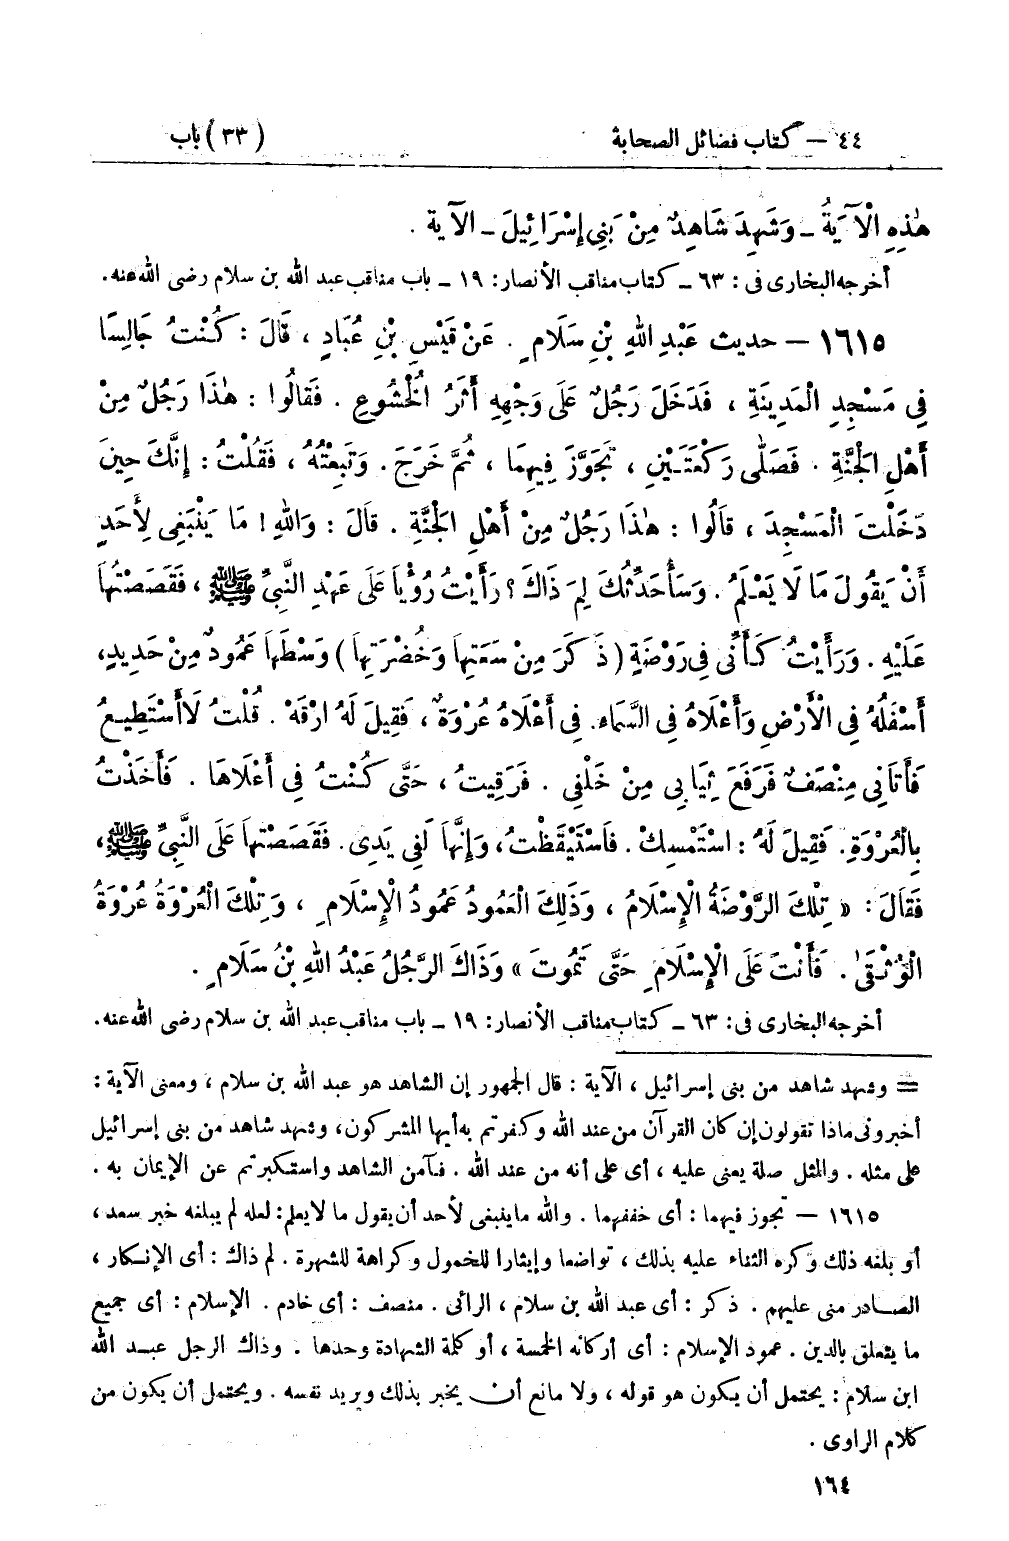 ٤٤ — كتاب فضائل الصحابة (٣٣) باب
هٰذِهِ الْآيَةُ ـ وَشَهِدَ شَاهِدٌ مِنْ بَنِي إِسْرَائِيلَ ـ الآية .
أخرجه البخارى فى : ٦٣ ـ كتاب مناقب الأنصار : ١٩ ـ باب مناقب عبد الله بن سلام رضى الله عنه .
١٦١٥ — حديث عَبْدِ اللهِ بْنِ سَلَامٍ . عَنْ قَيْسِ بْنِ عُبَادٍ ، قَالَ : كُنْتُ جَالِسًا
فِي مَسْجِدِ الْمَدِينَةِ ، فَدَخَلَ رَجُلٌ عَلَى وَجْهِهِ أَثَرُ الْخُشُوعِ . فَقَالُوا : هٰذَا رَجُلٌ مِنْ
أَهْلِ الْجَنَّةِ . فَصَلَّى رَكْعَتَيْنِ ، تَجَوَّزَ فِيهِمَا ، ثُمَّ خَرَجَ . وَتَبِعْتُهُ ، فَقُلْتُ : إِنَّكَ حِينَ
دَخَلْتَ الْمَسْجِدَ ، قَالُوا : هٰذَا رَجُلٌ مِنْ أَهْلِ الْجَنَّةِ . قَالَ : وَاللهِ ! مَا يَنْبَغِى لِأَحَدٍ
أَنْ يَقُولَ مَا لَا يَعْلَمُ . وَسَأُحَدِّثُكَ لِمَ ذَاكَ ؟ رَأَيْتُ رُؤْيَا عَلَى عَهْدِ النَّبِيِّ ﷺ ، فَقَصَصْتُهَا
عَلَيْهِ . وَرَأَيْتُ كَأَنِّى فِى رَوْضَةٍ ( ذَكَرَ مِنْ سَعَتِهَا وَخُضْرَتِهَا ) وَسْطَهَا عَمُودٌ مِنْ حَدِيدٍ،
أَسْفَلُهُ فِى الْأَرْضِ وَأَعْلَاهُ فِى السَّمَاءِ. فِى أَعْلَاهُ عُرْوَةٌ ، فَقِيلَ لَهُ ارْقَهْ . قُلْتُ لَا أَسْتَطِيعُ
فَأَتَانِى مِنْصَفٌ فَرَفَعَ ثِيَابِى مِنْ خَلْفِى . فَرَقِيتُ ، حَتَّى كُنْتُ فِى أَعْلَاهَا . فَأَخَذْتُ
بِالْعُرْوَةِ. فَقِيلَ لَهُ : اسْتَمْسِكْ . فَاسْتَيْقَظْتُ ، وَإِنَّهَا لَفِى يَدِى. فَقَصَصْتُهَا عَلَى النَّبِيِّ ﷺ ،
فَقَالَ : « تِلْكَ الرَّوْضَةُ الْإِسْلَامُ ، وَذَلِكَ الْعَمُودُ عَمُودُ الْإِسْلَامِ ، وَتِلْكَ الْعُرْوَةُ عُرْوَةُ
الْوُثْقَى . فَأَنْتَ عَلَى الْإِسْلَامِ حَتَّى تَمُوتَ » وَذَاكَ الرَّجُلُ عَبْدُ اللهِ بْنُ سَلَامٍ .
أخرجه البخارى فى : ٦٣ ـ كتاب مناقب الأنصار : ١٩ ـ باب مناقب عبد الله بن سلام رضى الله عنه .
= وشهد شاهد من بنى إسرائيل ، الآية : قال الجمهور إن الشاهد هو عبد الله بن سلام ، ومعنى الآية :
أخبرونى ماذا تقولون إن كان القرآن من عند الله وكفرتم به أيها المشركون، وشهد شاهد من بنى إسرائيل
على مثله . والمثل صلة يعنى عليه ، أى على أنه من عند الله . فآمن الشاهد واستكبرتم عن الإيمان به .
١٦١٥ — تجوز فيهما : أى خففهما . والله ما ينبغى لأحد أن يقول ما لا يعلم : لعله لم يبلغه خبر سعد ،
أو بلغه ذلك وكره الثناء عليه بذلك ، تواضعا وإيثارا للخمول وكراهة للشهرة . لم ذاك : أى الإنكار ،
الصادر منى عليهم . ذكر : أى عبد الله بن سلام ، الرائى . منصف : أى خادم . الإسلام : أى جميع
ما يتعلق بالدين . عمود الإسلام : أى أركانه الخمسة ، أو كلمة الشهادة وحدها . وذاك الرجل عبد الله
ابن سلام : يحتمل أن يكون هو قوله ، ولا مانع أن يخبر بذلك ويريد نفسه . ويحتمل أن يكون من
كلام الراوى .
١٦٤